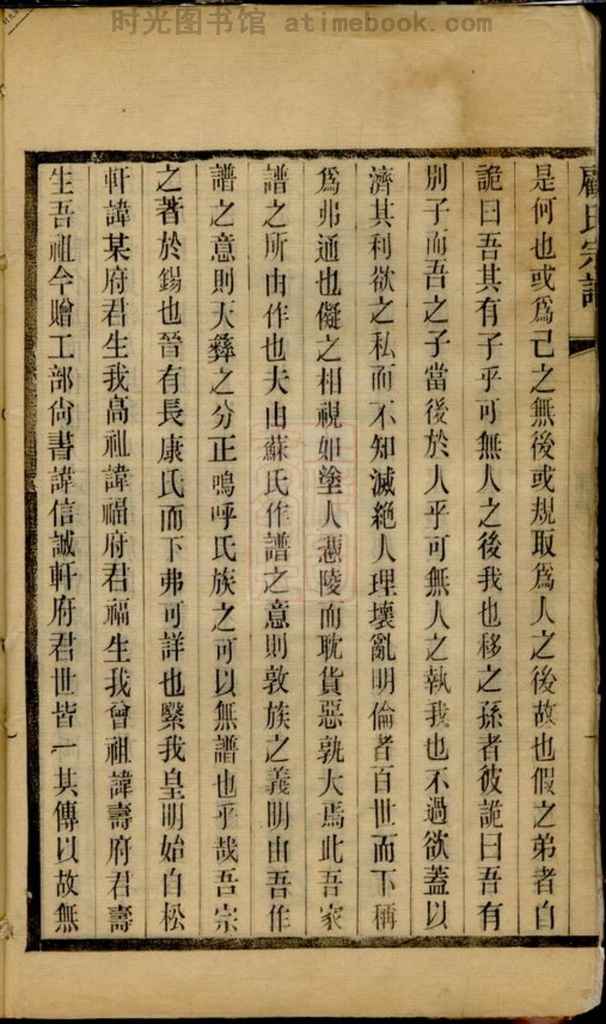 时光图书馆 atimebook.com
顧氏宗譜
是何也或爲己之無後或規取爲人之後故也假之弟者自
詭曰吾其有子乎可無人之後我也移之孫者彼詭曰吾有
別子而吾之子當後於人乎可無人之執我也不過欲蓋以
濟其利欲之私而不知滅絕人理壞亂明倫者百世而下稱
爲弗通也儗之相視如塗人憑陵而耽貨惡孰大焉此吾家
譜之所由作也夫由蘇氏作譜之意則敦族之義明由吾作
譜之意則天彝之分正嗚呼氏族之可以無譜也乎哉吾宗
之著於錫也晉有長康氏而下弗可詳也繄我皇明始自松
軒諱某府君生我高祖諱福府君福生我曾祖諱壽府君壽
生吾祖今贈工部尙書諱信誠軒府君世皆一其傳以故無